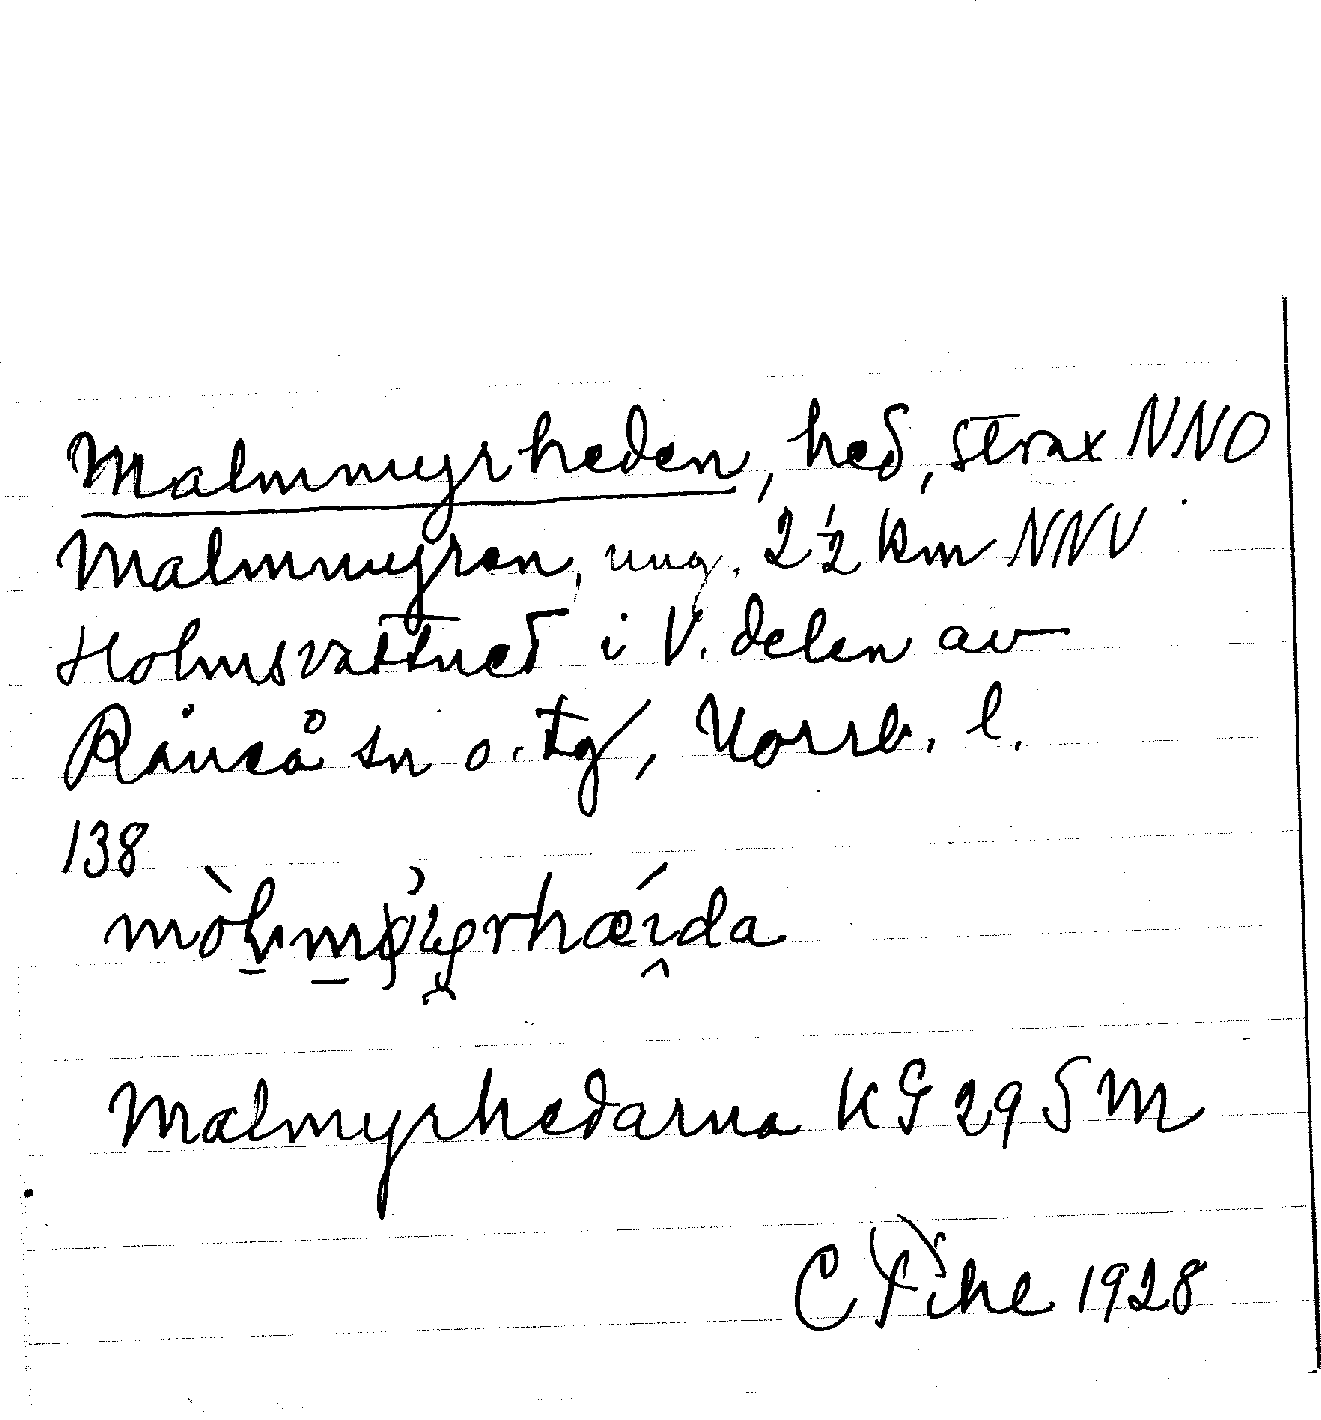 Malmmyrheden, hed, strax NNO
Malmmyran, ung. 2½ km NNV
Holmsvattnet i V. delen av
Råneå sn o. tg, Norrb. l.
138
Malmyrhedarna KG 29 SM
C Pihl 1928